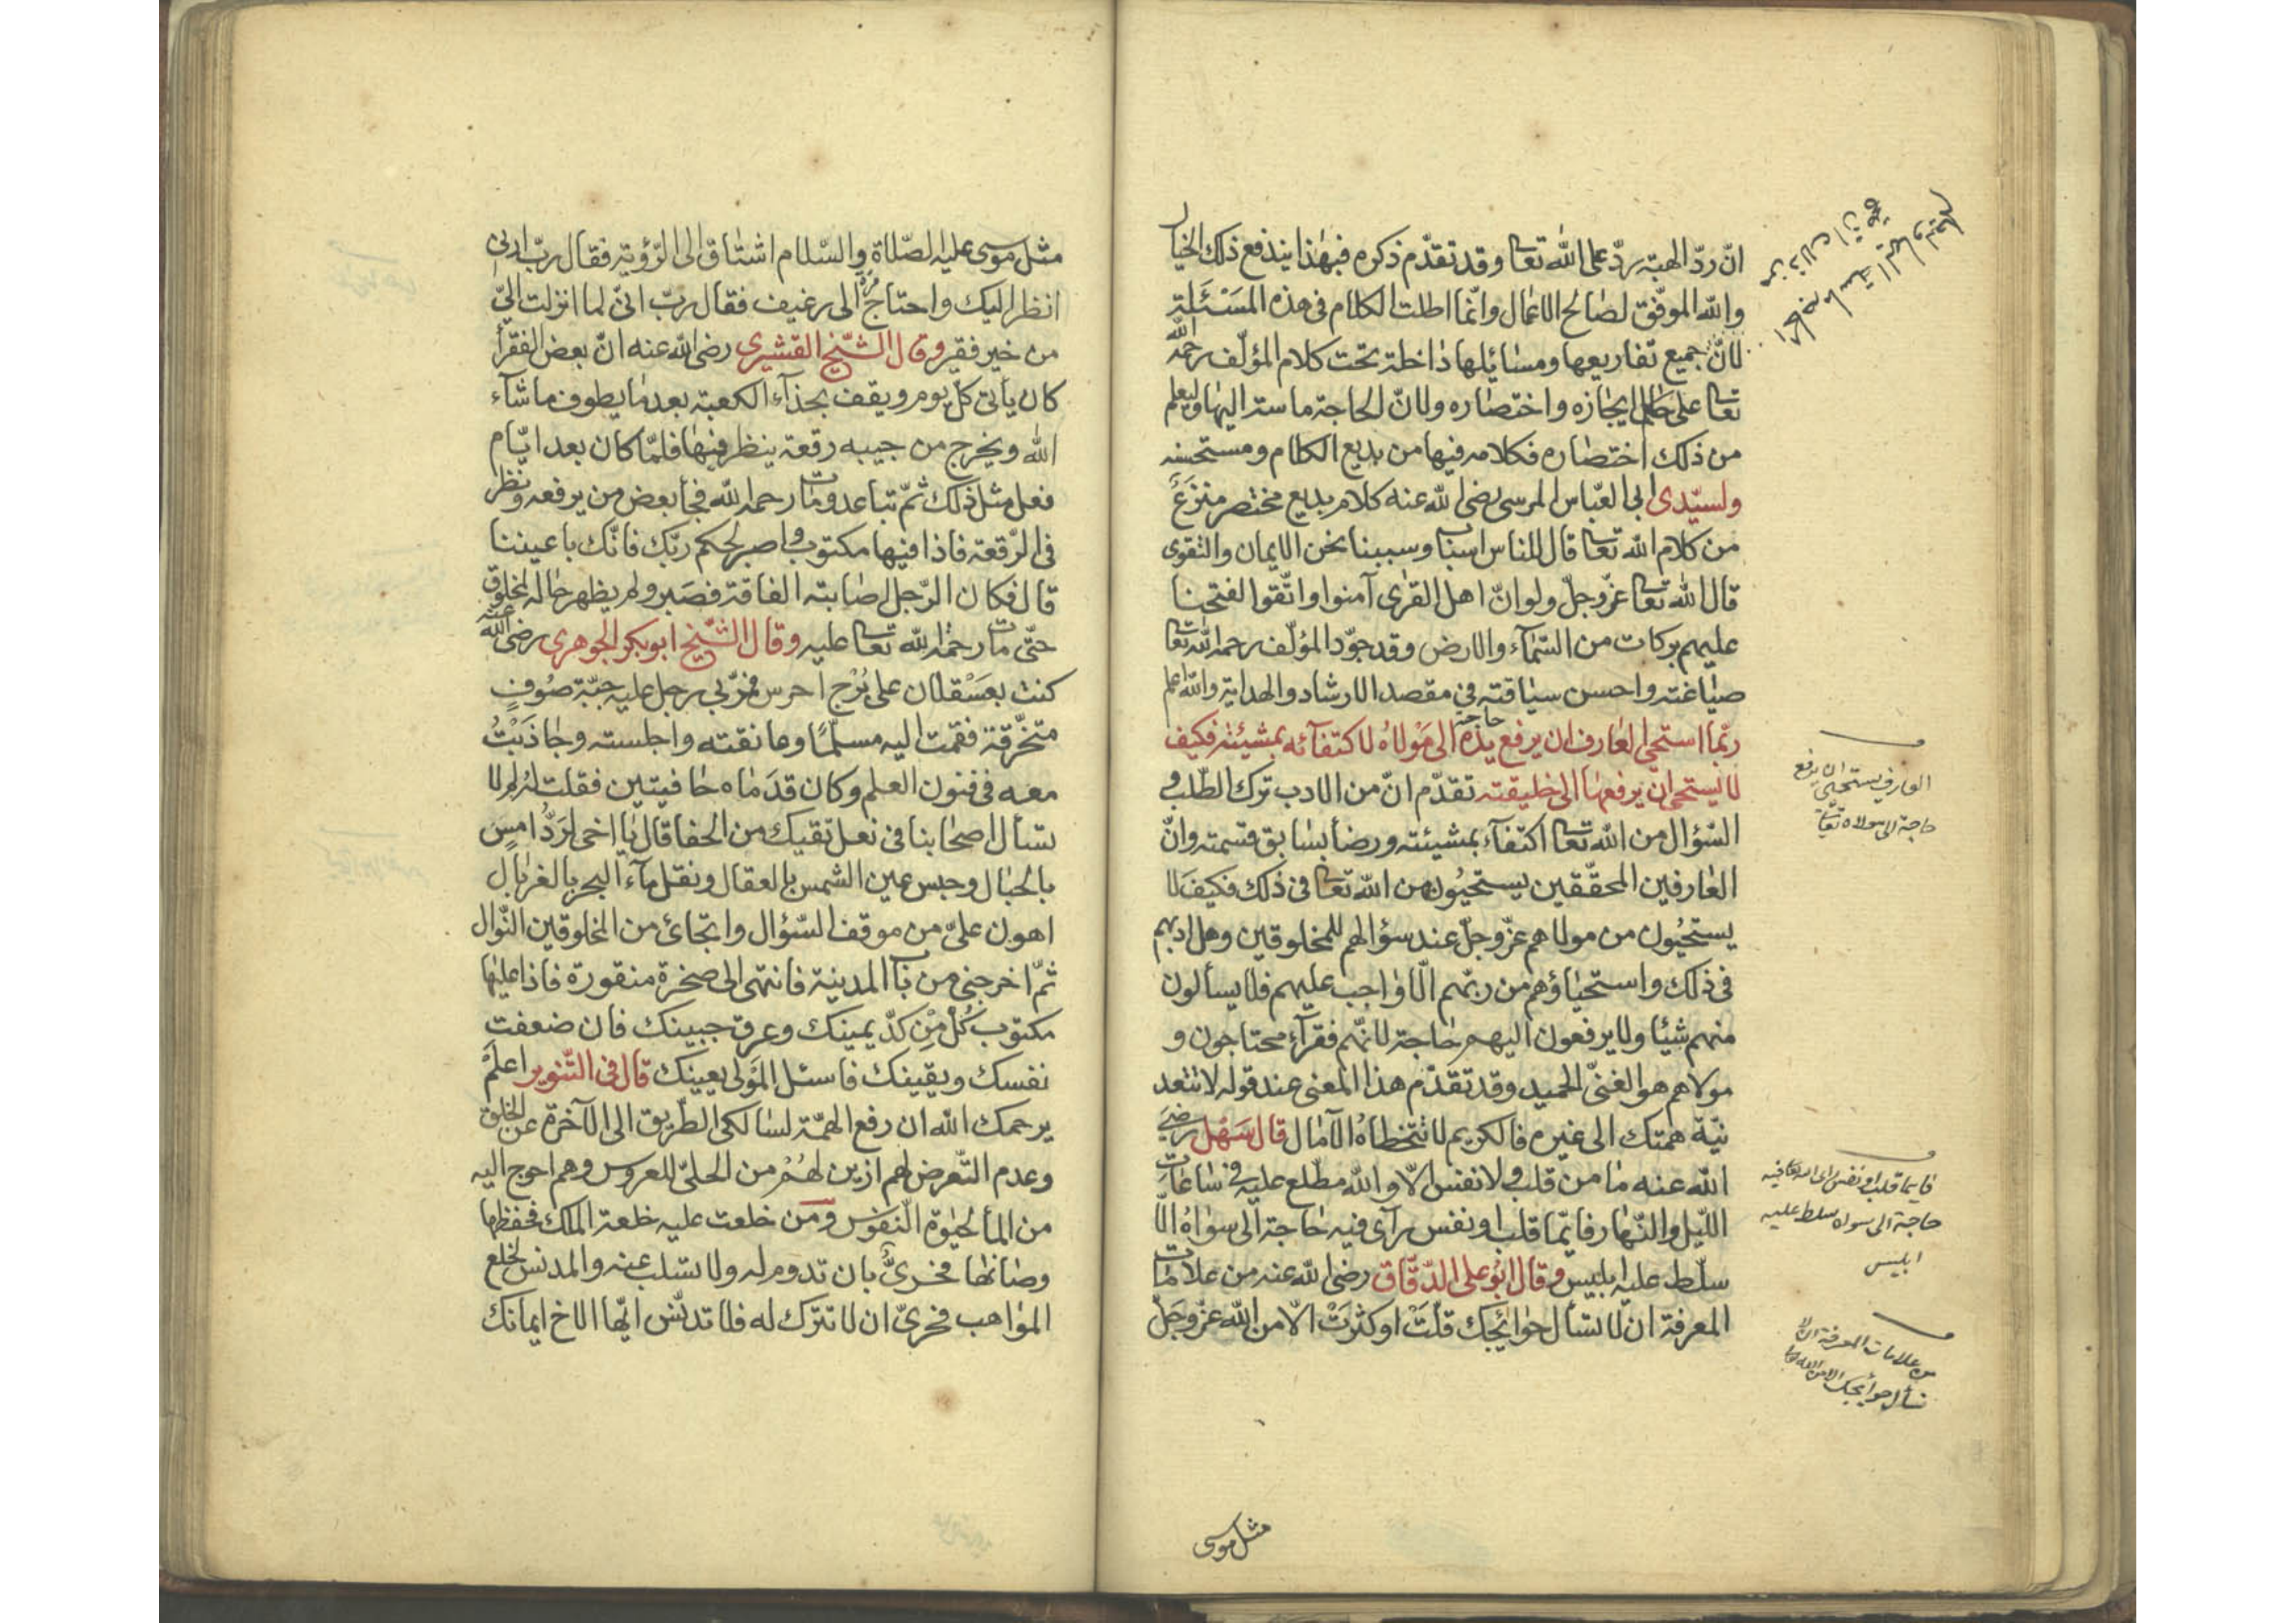 انّ ردّ الهبة ردّ على الله تعالى وقد تقدّم ذكره فبهذا يندفع ذلك الخيال
والله الموفّق لصالح الاعمال وانّما اطلت الكلام في هذه المسئلة
لانّ جميع تفاريعها ومسائلها داخلة تحت كلام المؤلّف رحمه الله
تعالى على حال ايجازه واختصاره ولانّ الحاجة ماسة اليها وليعلم
من ذلك اختصاره فكلامه فيها من بديع الكلام ومستحسنه
ولسيّدى ابى العبّاس المرسى رضى الله عنه كلام بديع مختصر منتزع
من كلام الله تعالى قال للناس اسباب وسببنا نحن الايمان والتقوى
قال الله تعالى عزّ وجلّ ولو انّ اهل القرى آمنوا واتّقوا لفتحنا
عليهم بركات من السّمآء والارض وقد جوّد المؤلّف رحمه الله تعالى
صياغته واحسن سياقته في مقصد الارشاد والهداية والله اعلم
ربّما استحى العارف ان يرفع حاجته الى مولاه لاكتفآئه بمشيئته فكيف
لا يستحى ان يرفعها الى خليقته تقدّم انّ من الادب ترك الطلب و
السّؤال من الله تعالى اكتفآء بمشيئته ورضا بسابق قسمته وانّ
العارفين المحقّقين يستحيون من الله تعالى فى ذلك فكيف لا
يستحيون من مولاهم عزّ وجلّ عند سؤالهم للمخلوقين وهل ادبهم
فى ذلك واستحياؤهم من ربّهم الّا واجب عليهم فلا يسألون
منهم شيئا ولا يرفعون اليهم حاجة لانّهم فقرآء محتاجون و
مولاهم هو الغنىّ الحميد وقد تقدّم هذا المعنى عند قوله لا تتعد
نيّة همتك الى غيره فالكريم لا تتخطاه الآمال قال سهل رضى
الله عنه ما من قلب ولا نفس الّا والله مطّلع عليه فى ساعات
اللّيل والنّهار فايّما قلب او نفس رآى فيه حاجة الى سواه الّا
سلّط عليه ابليس وقال ابو على الدّقّاق رضى الله عنه من علامات
المعرفة ان لا تسأل حوائجك قلّت او كثرت الّا من الله عزّ وجلّ
العارف يستحيى ان يرفع
حاجة الى مولاه تعالى
فايما قلب او نفس راى الله تعالى فيه
حاجة الى سواه سلط عليه
ابليس
من علامات المعرفة ان لا
تسأل حوائجك الا من الله تعالى
مثل موسى
مثل موسى عليه الصّلاة والسّلام اشتاق الى الرّؤية فقال ربّ ارنى
انظر اليك واحتاج مرة الى رغيف فقال ربّ انّى لما انزلت الىّ
من خير فقير وقال الشّيخ القشيرى رضى الله عنه انّ بعض الفقرآ
كان يأتى كلّ يوم ويقف بحذآء الكعبة بعد ما يطوف ما شآء
الله ويخرج من جيبه رقعة ينظر فيها فلمّا كان بعد ايّام
فعل مثل ذلك ثمّ تباعد ومات رحمه الله فجأ بعض من يرفعه ونظر
فى الرّقعة فاذا فيها مكتوب واصبر لحكم ربّك فانّك باعيننا
قال فكان الرّجل اصابته الفاقة فصبر ولم يظهر حاله لمخلوق
حتّى مات رحمة الله تعالى عليه وقال الشّيخ ابو بكر الجوهرى رضى الله عنه
كنت بعسقلان على برج احرس فمرّ بى رجل عليه جبّة صوف
متخرّقة فقمت اليه مسلّما وعانقته واجلسته وجاذبت
معه فى فنون العلم وكان قدماه حافيتين فقلت له لم لا
تسأل اصحابنا فى نعل تقيك من الحفا قال يا اخى لردّ امس
بالحبال وحبس عين الشمس بالعقال ونقل مآء البحر بالغربال
اهون علىّ من موقف السّؤال وابتجائ من المخلوقين النّوال
ثمّ اخرجنى من باب المدينة فانتهى الى صخرة منقورة فاذا عليها
مكتوب كل من كدّ يمينك وعرق جبينك فان ضعفت
نفسك ويقينك فاسئل المولى يعينك قال فى التّنوير اعلم
يرحمك الله ان رفع الهمّة لسالكى الطريق الى الآخرة عن الخلق
وعدم التّعرض لهم ازين لهم من الحلىّ للعروس وهم احوج اليه
من المأ لحيوة النّفوس ومن خلعت عليه خلعة الملك فحفظها
وصانها فحرىّ بان تدوم له ولا تسلب عنه والمدنس لخلع
المواهب فحرىّ ان لا تترك له فلا تدنّس ايّها الاخ ايمانك